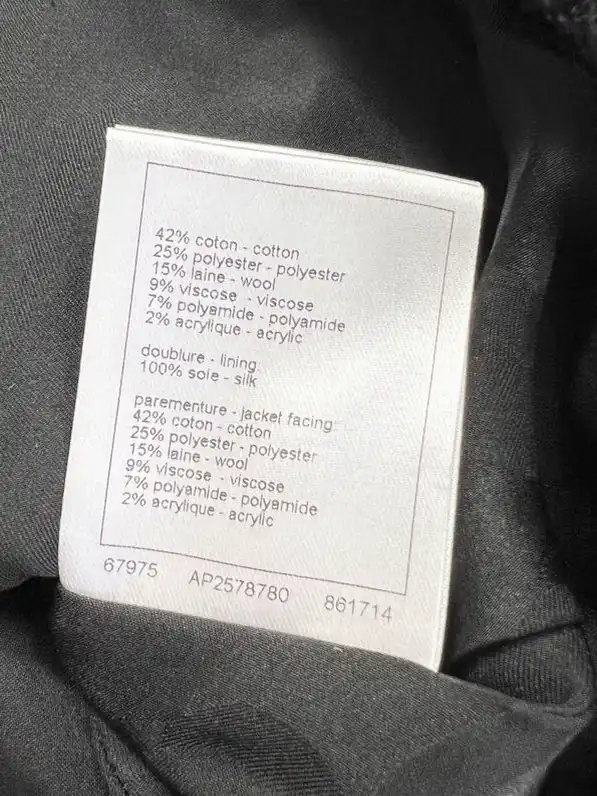 42% coton - cotton
25% polyester - polyester
15% laine - wool
9% viscose - viscose
7% polyamide - polyamide
2% acrylique - acrylic
doublure - lining:
100% soie - silk
parementure - jacket facing:
42% coton - cotton
25% polyester - polyester
15% laine - wool
9% viscose - viscose
7% polyamide - polyamide
2% acrylique - acrylic
67975 AP2578780 861714